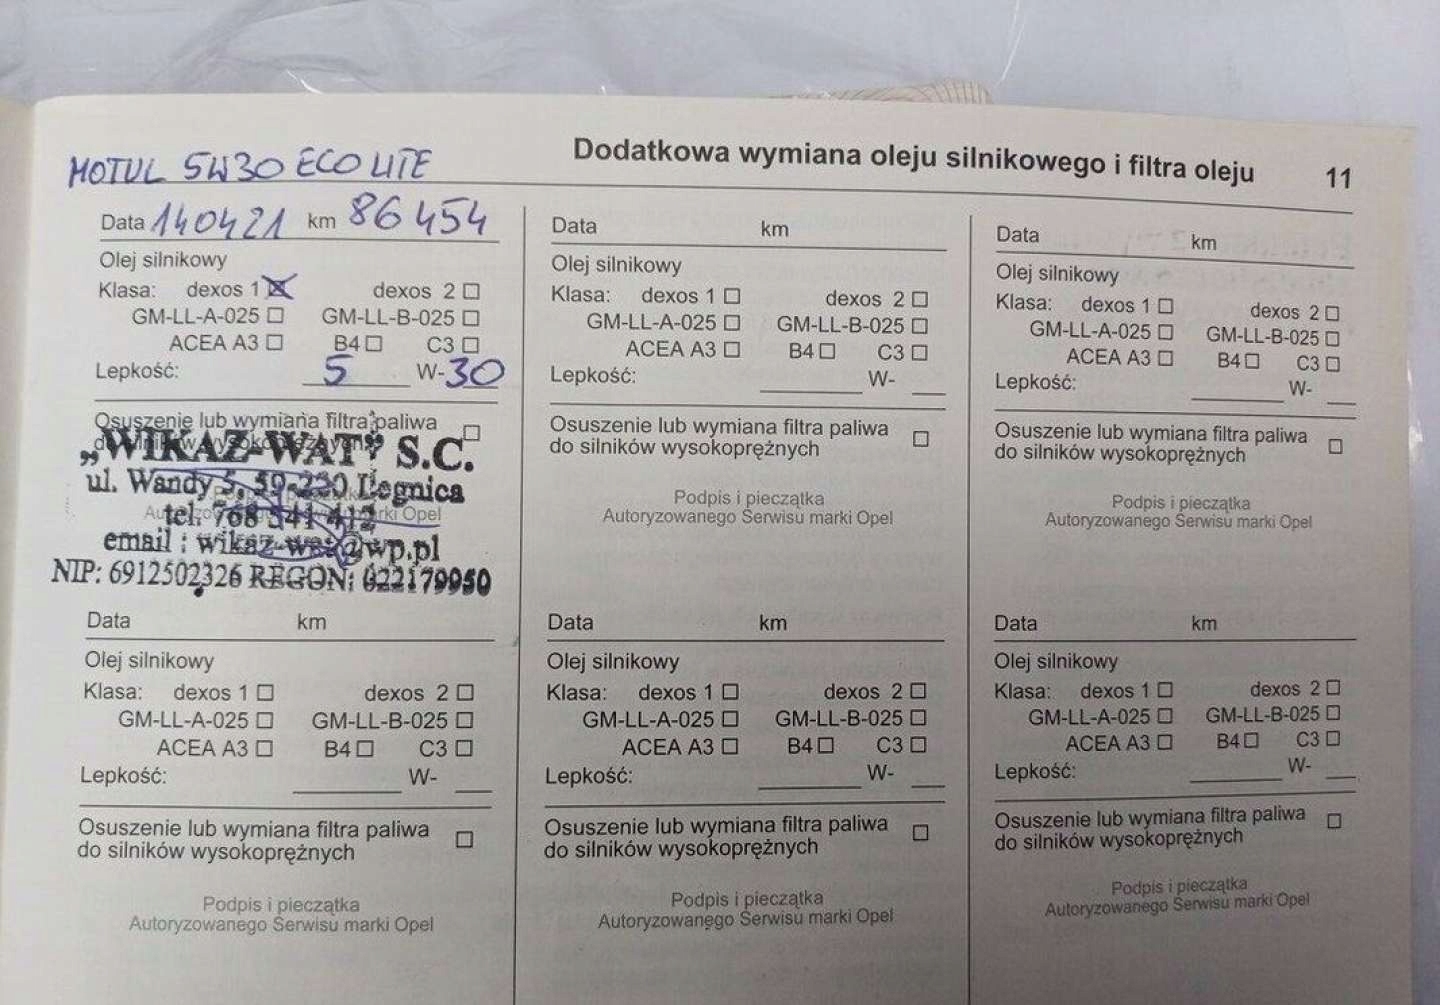 MOTUL 5W30 ECO LITE
Dodatkowa wymiana oleju silnikowego i filtra oleju 11
Data 140421 km 86454
Olej silnikowy
Klasa: dexos 1 ☒ dexos 2 ☐
GM-LL-A-025 ☐ GM-LL-B-025 ☐
ACEA A3 ☐ B4 ☐ C3 ☐
Lepkość: 5 W-30
Osuszenie lub wymiana filtra paliwa
do silników wysokoprężnych ☐
„WIKAZ-WAT” S.C.
ul. Wandy 5, 59-220 Legnica
tel. 768 541 412
email : wikaz-wat@wp.pl
NIP: 6912502326 REGON: 022179950
Podpis i pieczątka
Autoryzowanego Serwisu marki Opel
Data km
Olej silnikowy
Klasa: dexos 1 ☐ dexos 2 ☐
GM-LL-A-025 ☐ GM-LL-B-025 ☐
ACEA A3 ☐ B4 ☐ C3 ☐
Lepkość: W-
Osuszenie lub wymiana filtra paliwa
do silników wysokoprężnych ☐
Podpis i pieczątka
Autoryzowanego Serwisu marki Opel
Data km
Olej silnikowy
Klasa: dexos 1 ☐ dexos 2 ☐
GM-LL-A-025 ☐ GM-LL-B-025 ☐
ACEA A3 ☐ B4 ☐ C3 ☐
Lepkość: W-
Osuszenie lub wymiana filtra paliwa
do silników wysokoprężnych ☐
Podpis i pieczątka
Autoryzowanego Serwisu marki Opel
Data km
Olej silnikowy
Klasa: dexos 1 ☐ dexos 2 ☐
GM-LL-A-025 ☐ GM-LL-B-025 ☐
ACEA A3 ☐ B4 ☐ C3 ☐
Lepkość: W-
Osuszenie lub wymiana filtra paliwa
do silników wysokoprężnych ☐
Podpis i pieczątka
Autoryzowanego Serwisu marki Opel
Data km
Olej silnikowy
Klasa: dexos 1 ☐ dexos 2 ☐
GM-LL-A-025 ☐ GM-LL-B-025 ☐
ACEA A3 ☐ B4 ☐ C3 ☐
Lepkość: W-
Osuszenie lub wymiana filtra paliwa
do silników wysokoprężnych ☐
Podpis i pieczątka
Autoryzowanego Serwisu marki Opel
Data km
Olej silnikowy
Klasa: dexos 1 ☐ dexos 2 ☐
GM-LL-A-025 ☐ GM-LL-B-025 ☐
ACEA A3 ☐ B4 ☐ C3 ☐
Lepkość: W-
Osuszenie lub wymiana filtra paliwa
do silników wysokoprężnych ☐
Podpis i pieczątka
Autoryzowanego Serwisu marki Opel